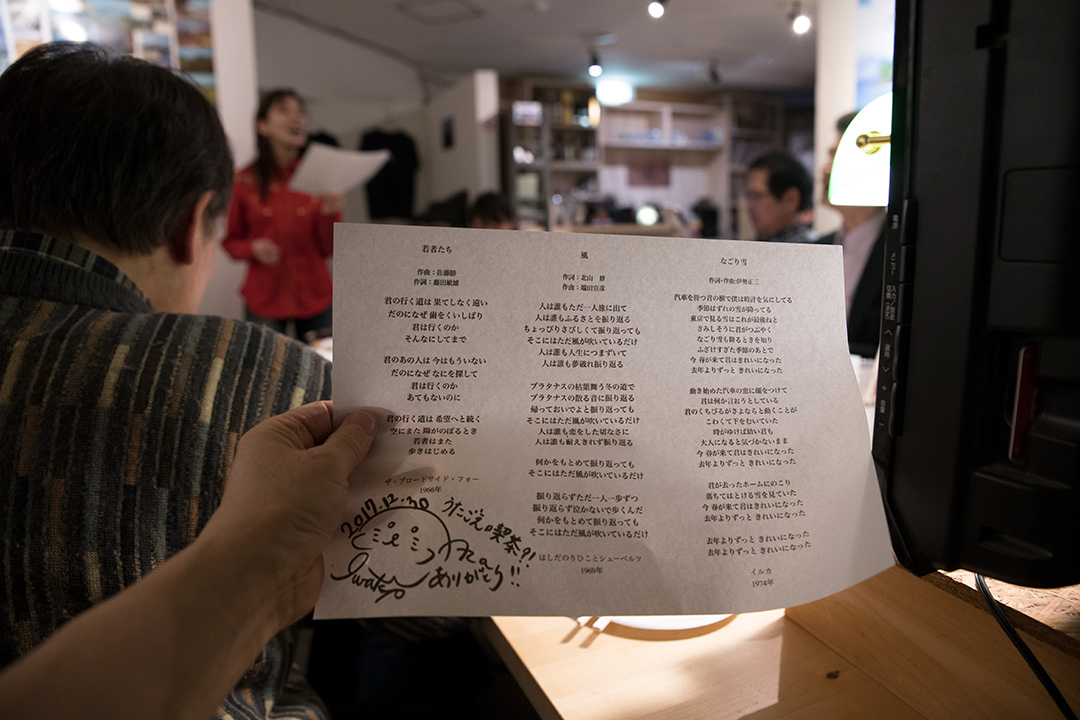 若者たち
作曲：佐藤勝
作詞：藤田敏雄
君の行く道は 果てしなく遠い
だのになぜ 歯をくいしばり
君は行くのか
そんなにしてまで
君のあの人は 今はもういない
だのになぜ なにを探して
君は行くのか
あてもないのに
君の行く道は 希望へと続く
空にまた 陽がのぼるとき
若者はまた
歩きはじめる
ザ・ブロードサイド・フォー
1966年
風
作詞：北山 修
作曲：端田宣彦
人は誰もただ一人旅に出て
人は誰もふるさとを振り返る
ちょっぴりさびしくて振り返っても
そこにはただ風が吹いているだけ
人は誰も人生につまずいて
人は誰も夢破れ振り返る
プラタナスの枯葉舞う冬の道で
プラタナスの散る音に振り返る
帰っておいでよと振り返っても
そこにはただ風が吹いているだけ
人は誰も恋をした切なさに
人は誰も耐えきれず振り返る
何かをもとめて振り返っても
そこにはただ風が吹いているだけ
振り返らずただ一人一歩ずつ
振り返らず泣かないで歩くんだ
何かをもとめて振り返っても
そこにはただ風が吹いているだけ
はしだのりひことシューベルツ
1969年
なごり雪
作詞・作曲:伊勢正三
汽車を待つ君の横で僕は時計を気にしてる
季節はずれの雪が降ってる
東京で見る雪はこれが最後ねと
さみしそうに君がつぶやく
なごり雪も降るときを知り
ふざけすぎた季節のあとで
今 春が来て君はきれいになった
去年よりずっと きれいになった
動き始めた汽車の窓に顔をつけて
君は何か言おうとしている
君のくちびるがさよならと動くことが
こわくて下をむいていた
時がゆけば幼い君も
大人になると気づかないまま
今 春が来て君はきれいになった
去年よりずっと きれいになった
君が去ったホームにのこり
落ちてはとける雪を見ていた
今 春が来て君はきれいになった
去年よりずっと きれいになった
去年よりずっと きれいになった
去年よりずっと きれいになった
イルカ
1974年
2017.12.30
うたごえ喫茶
ありがとう!!